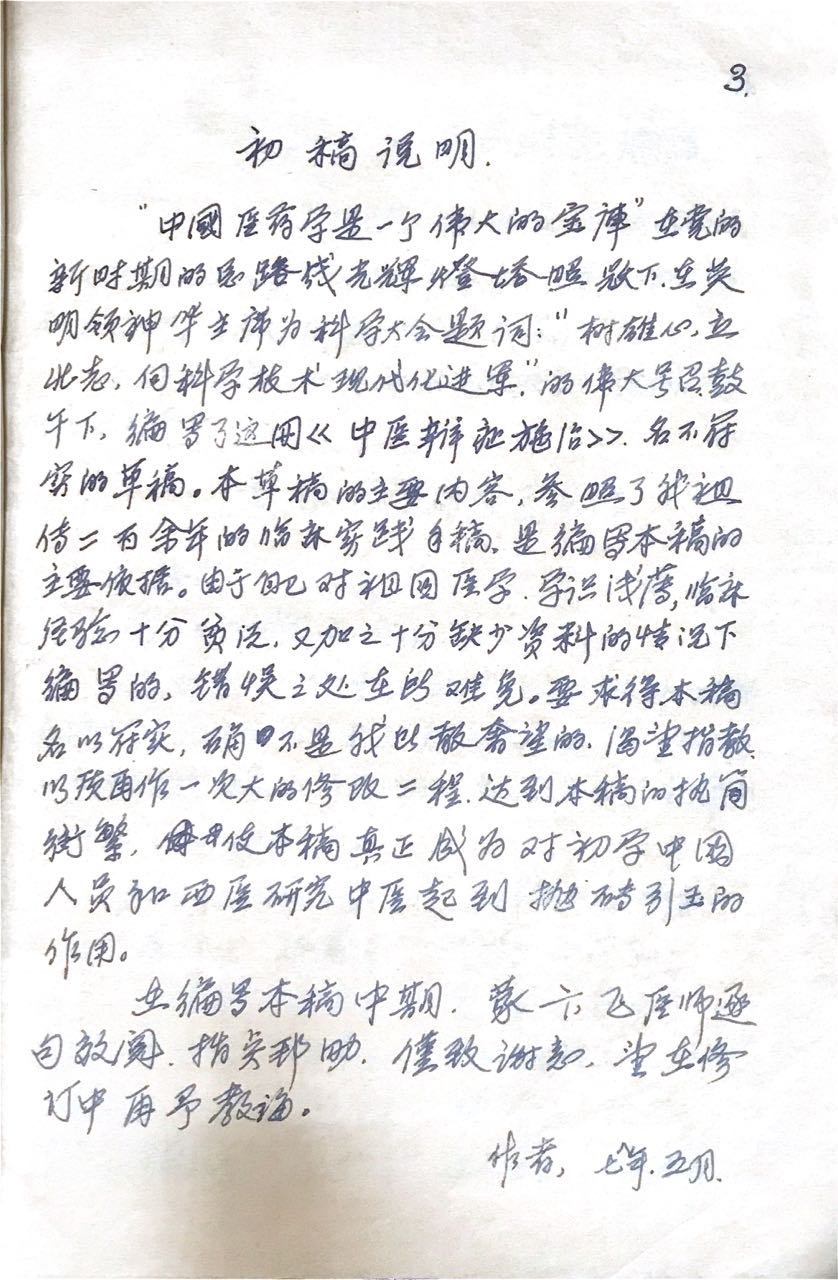 3.
初稿说明.
"中國医药学是一个伟大的宝庫"在党的
新时期的总路线光輝灯塔照耀下.在英
明领袖华主席为科学大会题词:"树雄心,立
壮志,向科学技术现代化进军."的伟大号召鼓
午下,编写了这册《中医辩证施治》.名不符
实的草稿。本草稿的主要内容,参照了我祖
传二百余年的临床实践手稿、是编写本稿的
主要依据。由于自己对祖国医学.学识浅薄,临床
经验十分贫泛.又加之十分缺少资料的情况下
编写的,错误之处在所难免。要求得本稿
名以符实,确不是我所敢奢望的.渴望指教.
以须再作一次大的修改工程.达到本稿的执简
衔繁,使本稿真正成为对初学中国
人员和西医研究中医起到抛砖引玉的
作用。
在编写本稿中期.蒙六飞医师逐
句效阅.指点邦助.僅致谢意.望在修
订中再予教诲。
作者,七八年.五月.